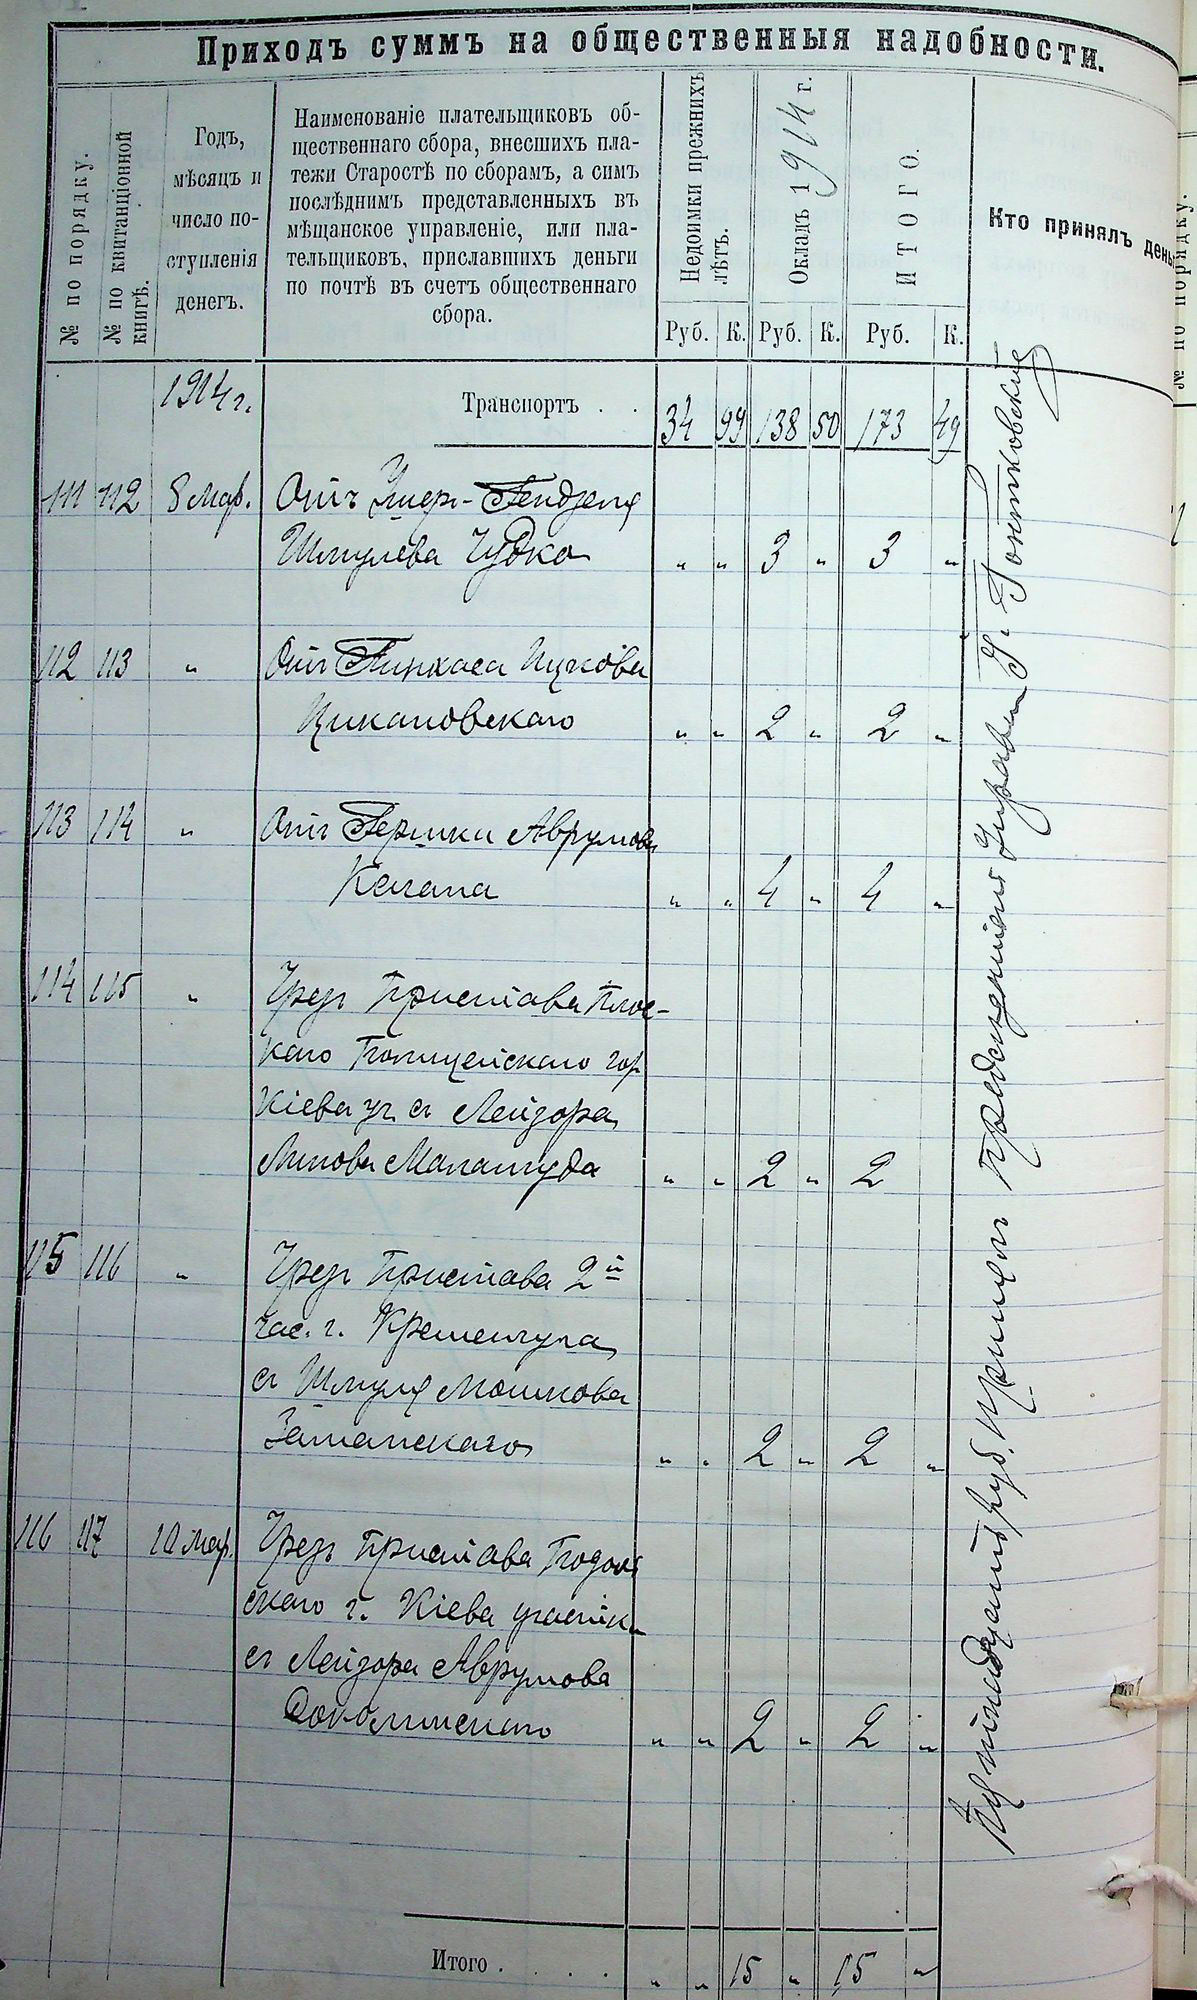 Приходъ суммъ на общественныя надобности.
№ по порядку.
№ по квитанціонной
книгѣ.
Годъ,
мѣсяцъ и
число по-
ступленія
денегъ.
Наименованіе плательщиковъ об-
щественнаго сбора, внесшихъ пла-
тежи Старостѣ по сборамъ, а симъ
послѣднимъ представленныхъ въ
мѣщанское управленіе, или пла-
тельщиковъ, приславшихъ деньги
по почтѣ въ счетъ общественнаго
сбора.
Недоимки прежнихъ
лѣтъ.
Окладъ 1914 г.
ИТОГО.
Кто принялъ день
Руб. К. Руб. К. Руб. К.
1914 г. Транспортъ . . 34 99 138 50 173 49
111 112 8 Мар. Отъ Умер-
Шмулева Чудка " " 3 " 3 "
112 113 " Отъ Пинхаса Ицкова
Цикановскаго " " 2 " 2 "
113 114 " Отъ Гершки Аврумова
Кагана " " 4 " 4 "
114 115 " Чрез Пристава Плос-
каго Полицейскаго гор
Кіева уч. съ Лейзора
" " 2 " 2
115 116 " Чрез Пристава 2й
час. г. Кременчуга
съ Шмуля Мошкова
" " 2 " 2 "
116 117 10 Мар. Чрез Пристава Подоль
скаго г. Кіева участка
съ Лейзора Аврумова
" " 2 " 2 "
Пятнадцать руб. принялъ Председатель Управы Гонтковскій
Итого . . . . " " 15 " 15 "
№ по порядку.